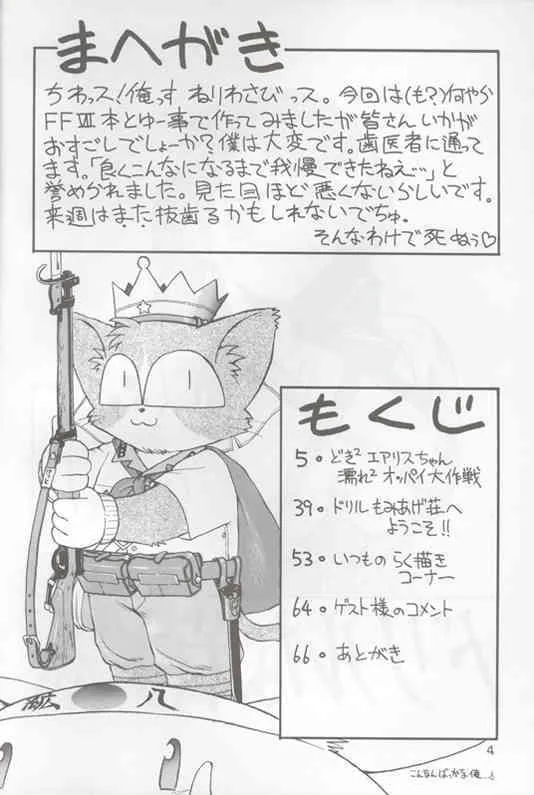 まへがき
ちわっス!俺っす ねりわさびっス。今回は(も?)何やら
FFⅦ本とゆー事で作ってみましたが皆さんいかが
おすごしでしょーか?僕は大変です。歯医者に通って
ます。「良くこんなになるまで我慢できたねえ…」と
誉められました。見た目ほど悪くないらしいです。
来週はまた抜歯るかもしれないでちゅ。
そんなわけで死ぬぅ♡
もくじ
5。どき²エアリスちゃん
濡れ²オッパイ大作戦
39。ドリルもみあげ荘へ
ようこそ!!
53。いつものらく描き
コーナー
64。ゲスト様のコメント
66。あとがき
八
4
こんなんばっかな俺…